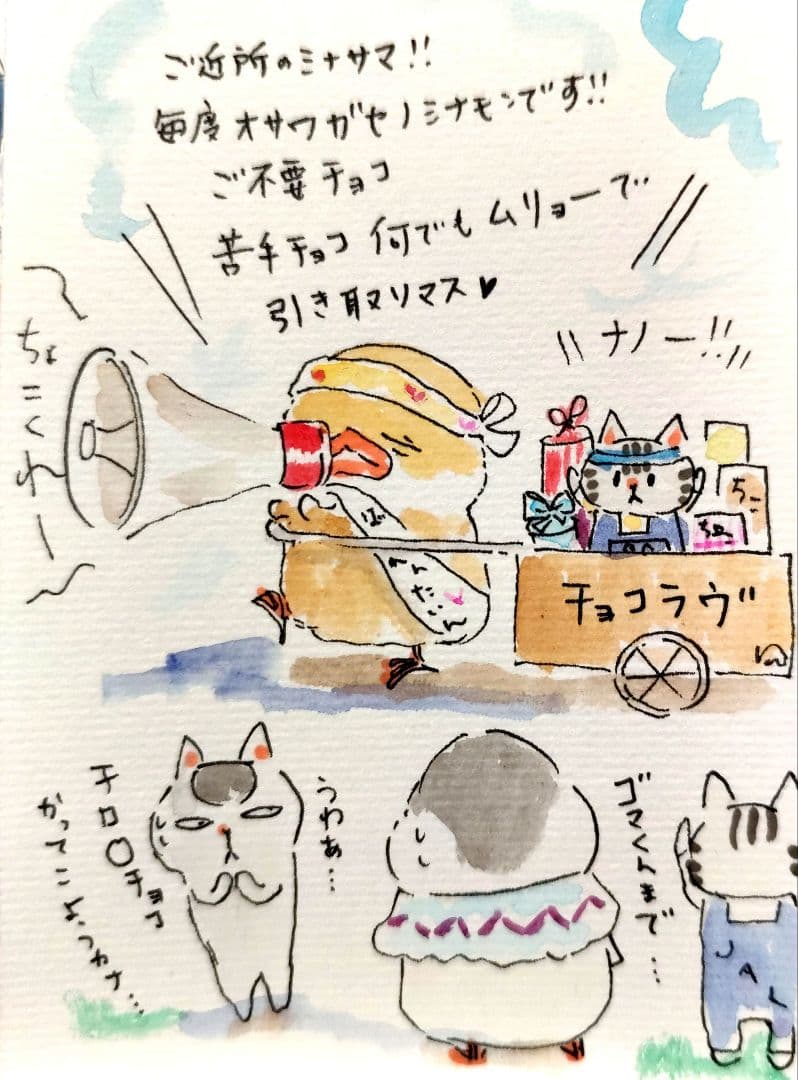 ご近所のミナサマ!!
毎度オサワガセノミナモンです!!
ご不要チョコ
苦手チョコ何でもムリョーで
引き取リマス♥
ちょこくれー
ナノー!!
ばれんたいん
ちこ
ちょこ
チョコラヴ
うわぁ…
チロ〇チョコ
かってこよっカナ…
ゴマくんまで…
JAL